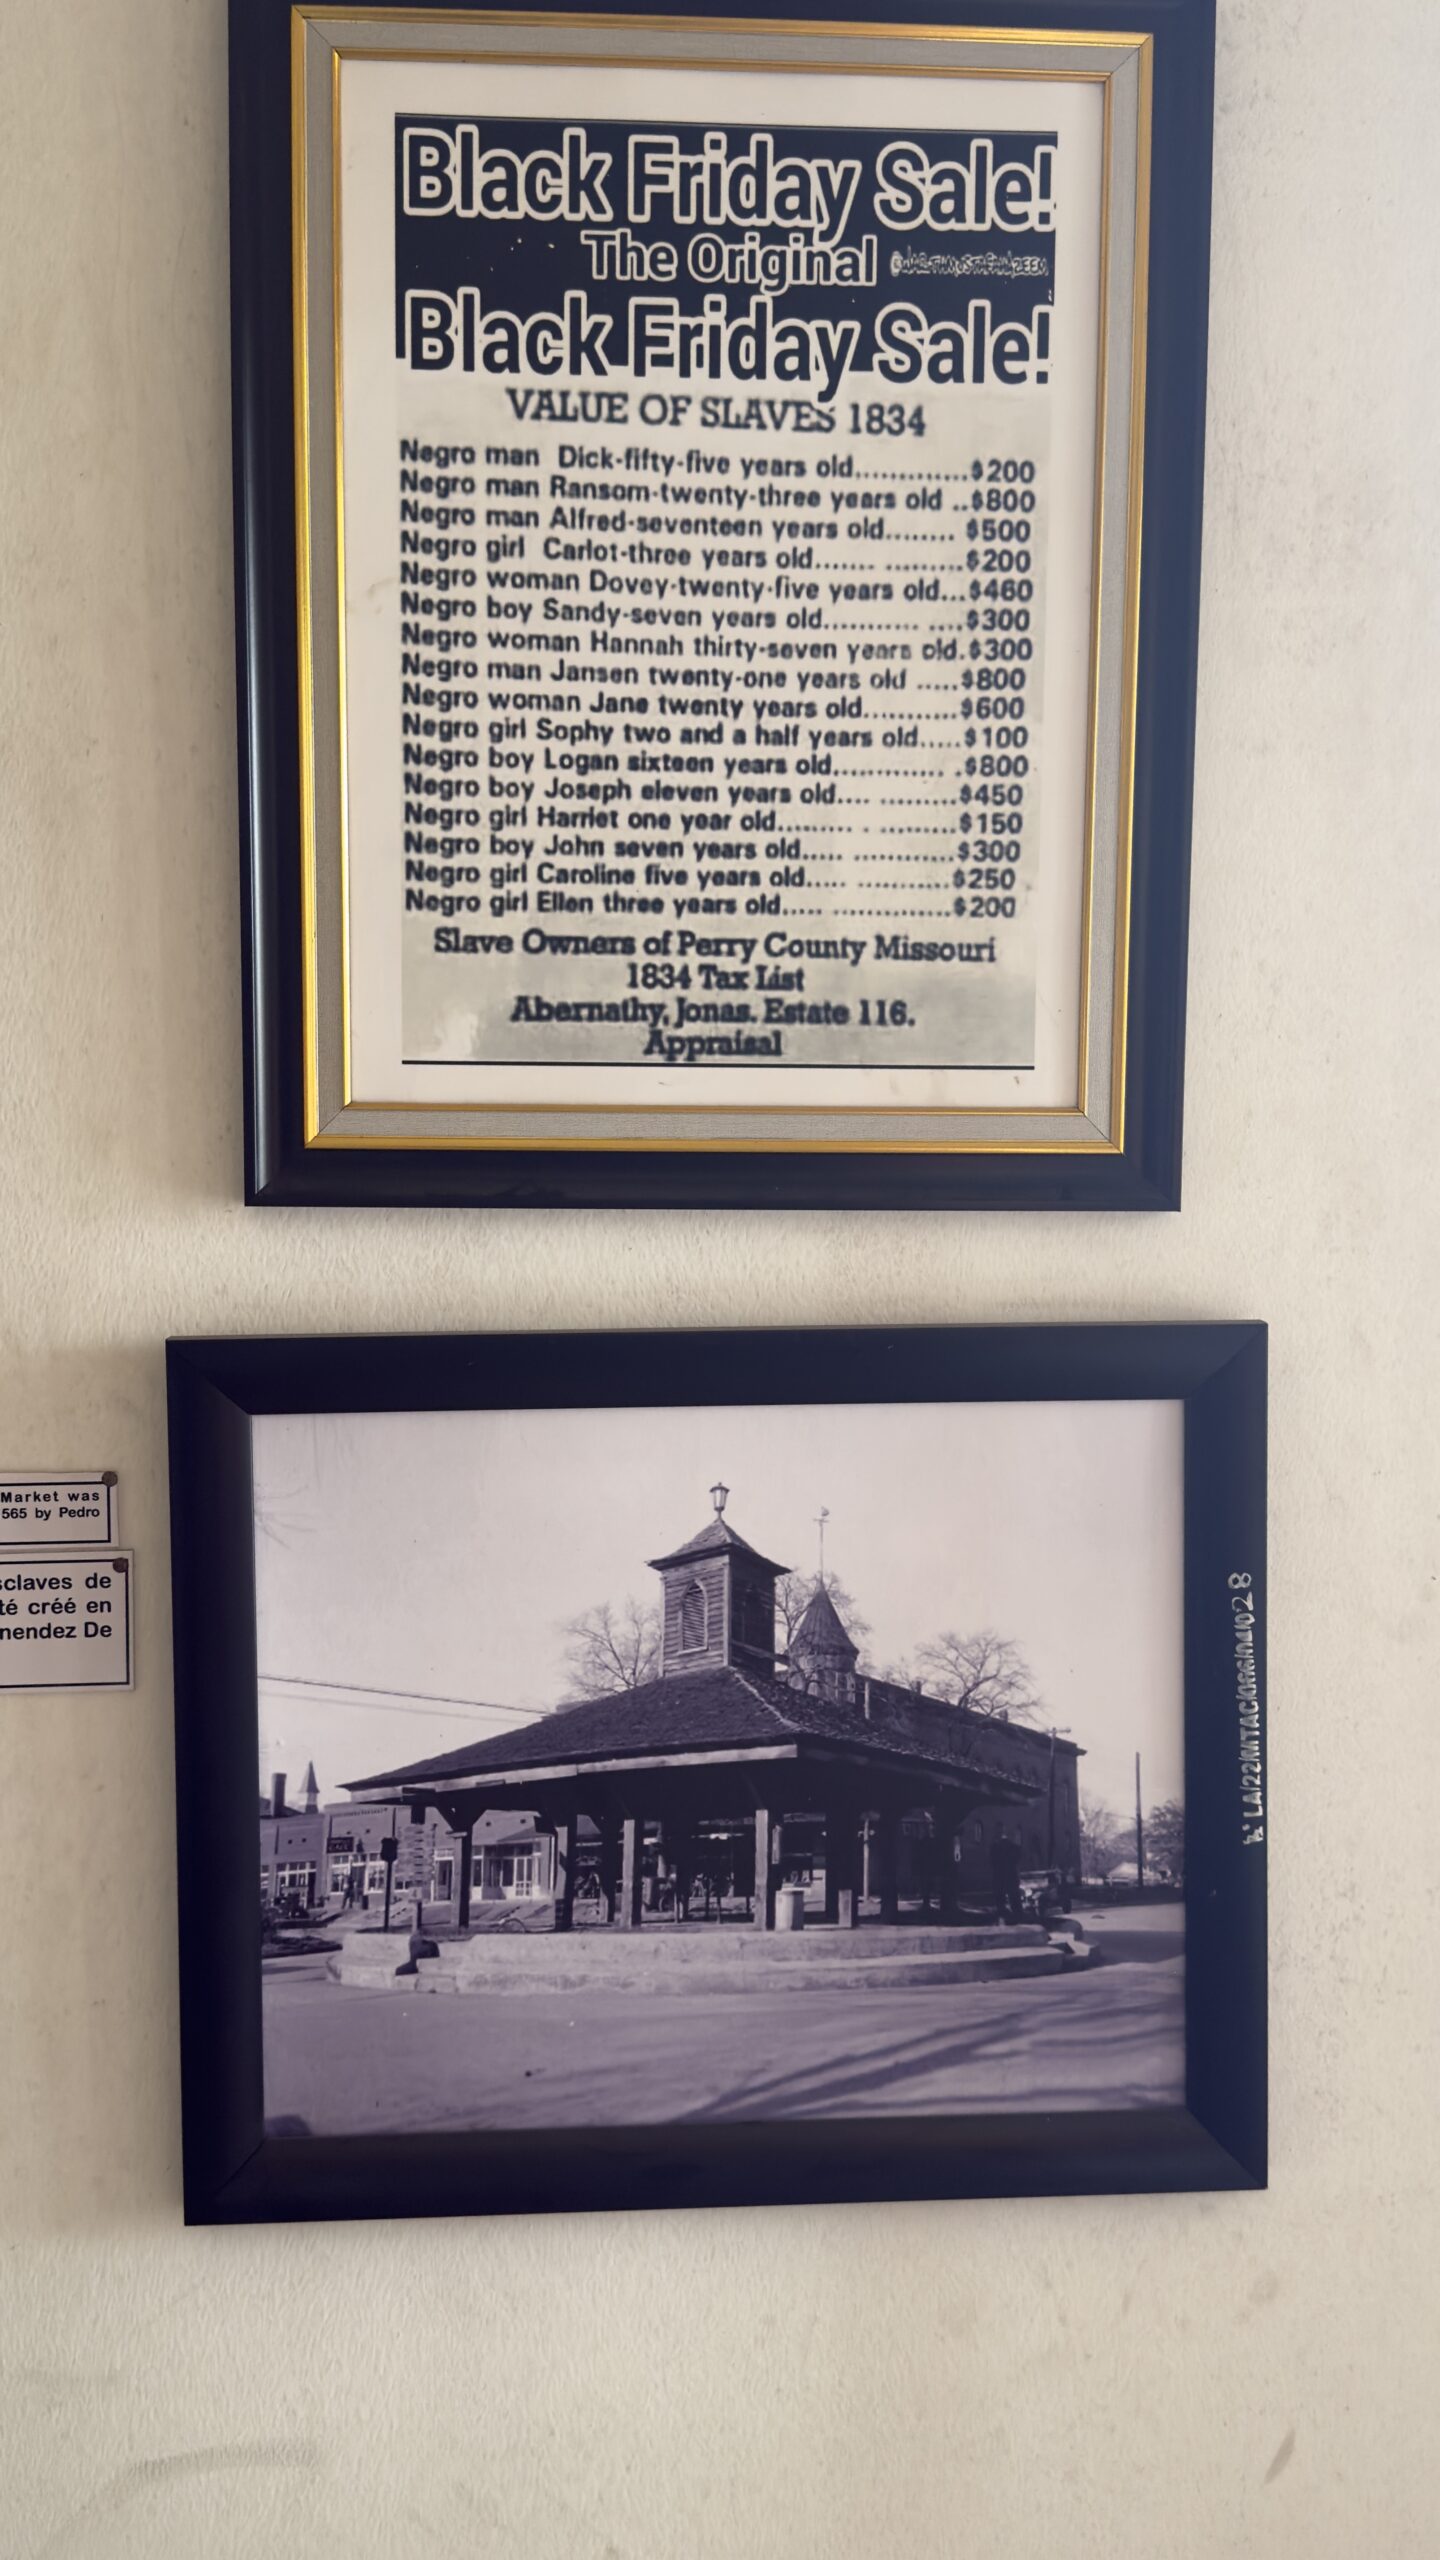 Black Friday Sale!
The Original
Black Friday Sale!
VALUE OF SLAVES 1834
Negro man Dick-fifty-five years old.............$200
Negro man Ransom-twenty-three years old ..$800
Negro man Alfred-seventeen years old........ $500
Negro girl Carlot-three years old....... .........$200
Negro woman Dovey-twenty-five years old...$460
Negro boy Sandy-seven years old........... ....$300
Negro woman Hannah thirty-seven years old.$300
Negro man Jansen twenty-one years old .....$800
Negro woman Jane twenty years old...........$600
Negro girl Sophy two and a half years old.....$100
Negro boy Logan sixteen years old............. .$800
Negro boy Joseph eleven years old.... .........$450
Negro girl Harriet one year old......... . .........$150
Negro boy John seven years old..... ............$300
Negro girl Caroline five years old..... ...........$250
Negro girl Ellen three years old..... ..............$200
Slave Owners of Perry County Missouri
1834 Tax List
Abernathy, Jonas. Estate 116.
Appraisal
Market was
565 by Pedro
sclaves de
té créé en
nendez De